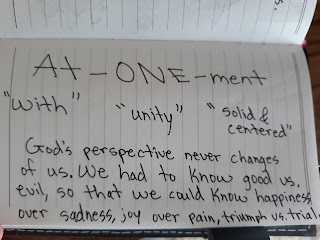 At-ONE-ment
"with" "unity" "solid &
centered"
God's perspective never changes
of us. We had to know good vs.
evil, so that we could know happiness
over sadness, joy over pain, triumph vs. trial.